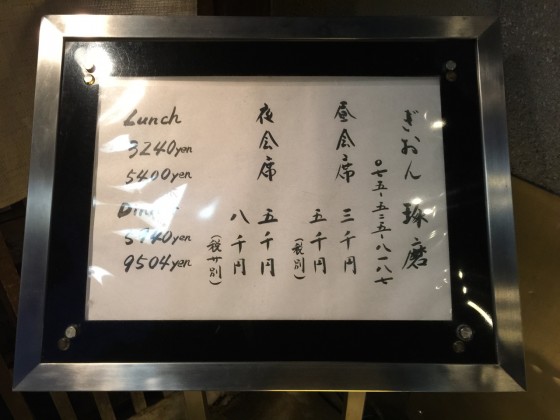 ぎおん 琢磨
〇七五-五二五-八一八七
昼会席 三千円
五千円
(税別)
夜会席 五千円
八千円
(税サ別)
Lunch
3240yen
5400yen
Dinner
5940yen
9504yen